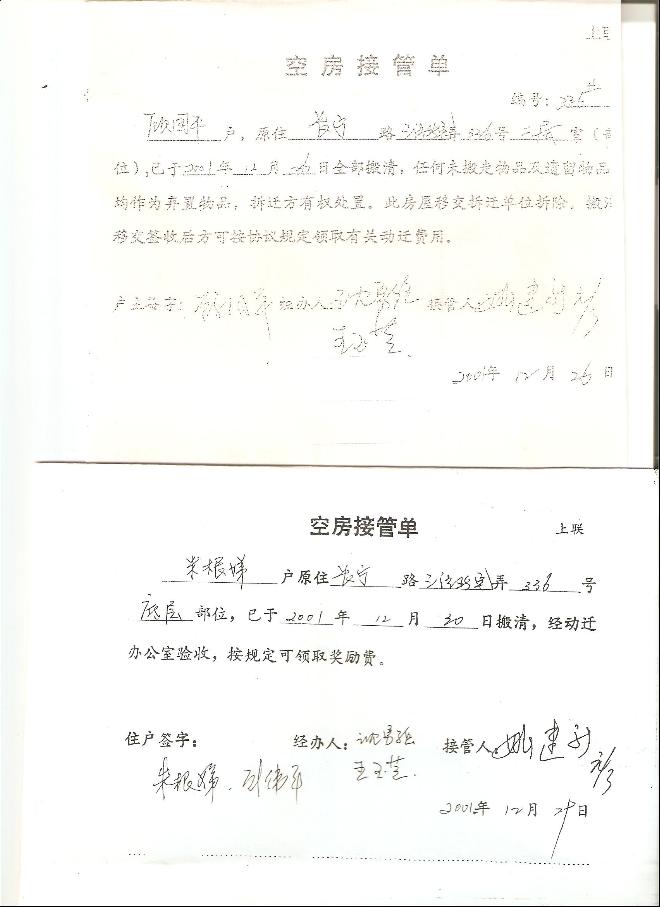 上联
空房接管单
编号:
顾国平 户，原住 长宁 路 弄 336号 二层 室（
位),已于2001年12月26日全部搬清，任何未搬走物品及遗留物品
均作为弃置物品，拆迁方有权处置。此房屋移交拆迁单位拆除。搬
移交签收后方可按协议规定领取有关动迁费用。
户主签字: 顾国平 经办人 接管人
王玉莲
2001年 12月 26日
空房接管单
上联
米根娣 户原住 长宁 路 弄 336 号
底层 部位，已于 2001 年 12 月 30 日搬清，经动迁
办公室验收，按规定可领取奖励费。
住户签字： 经办人：沈 接管人
米根娣. 王玉莲.
2001年12月29日